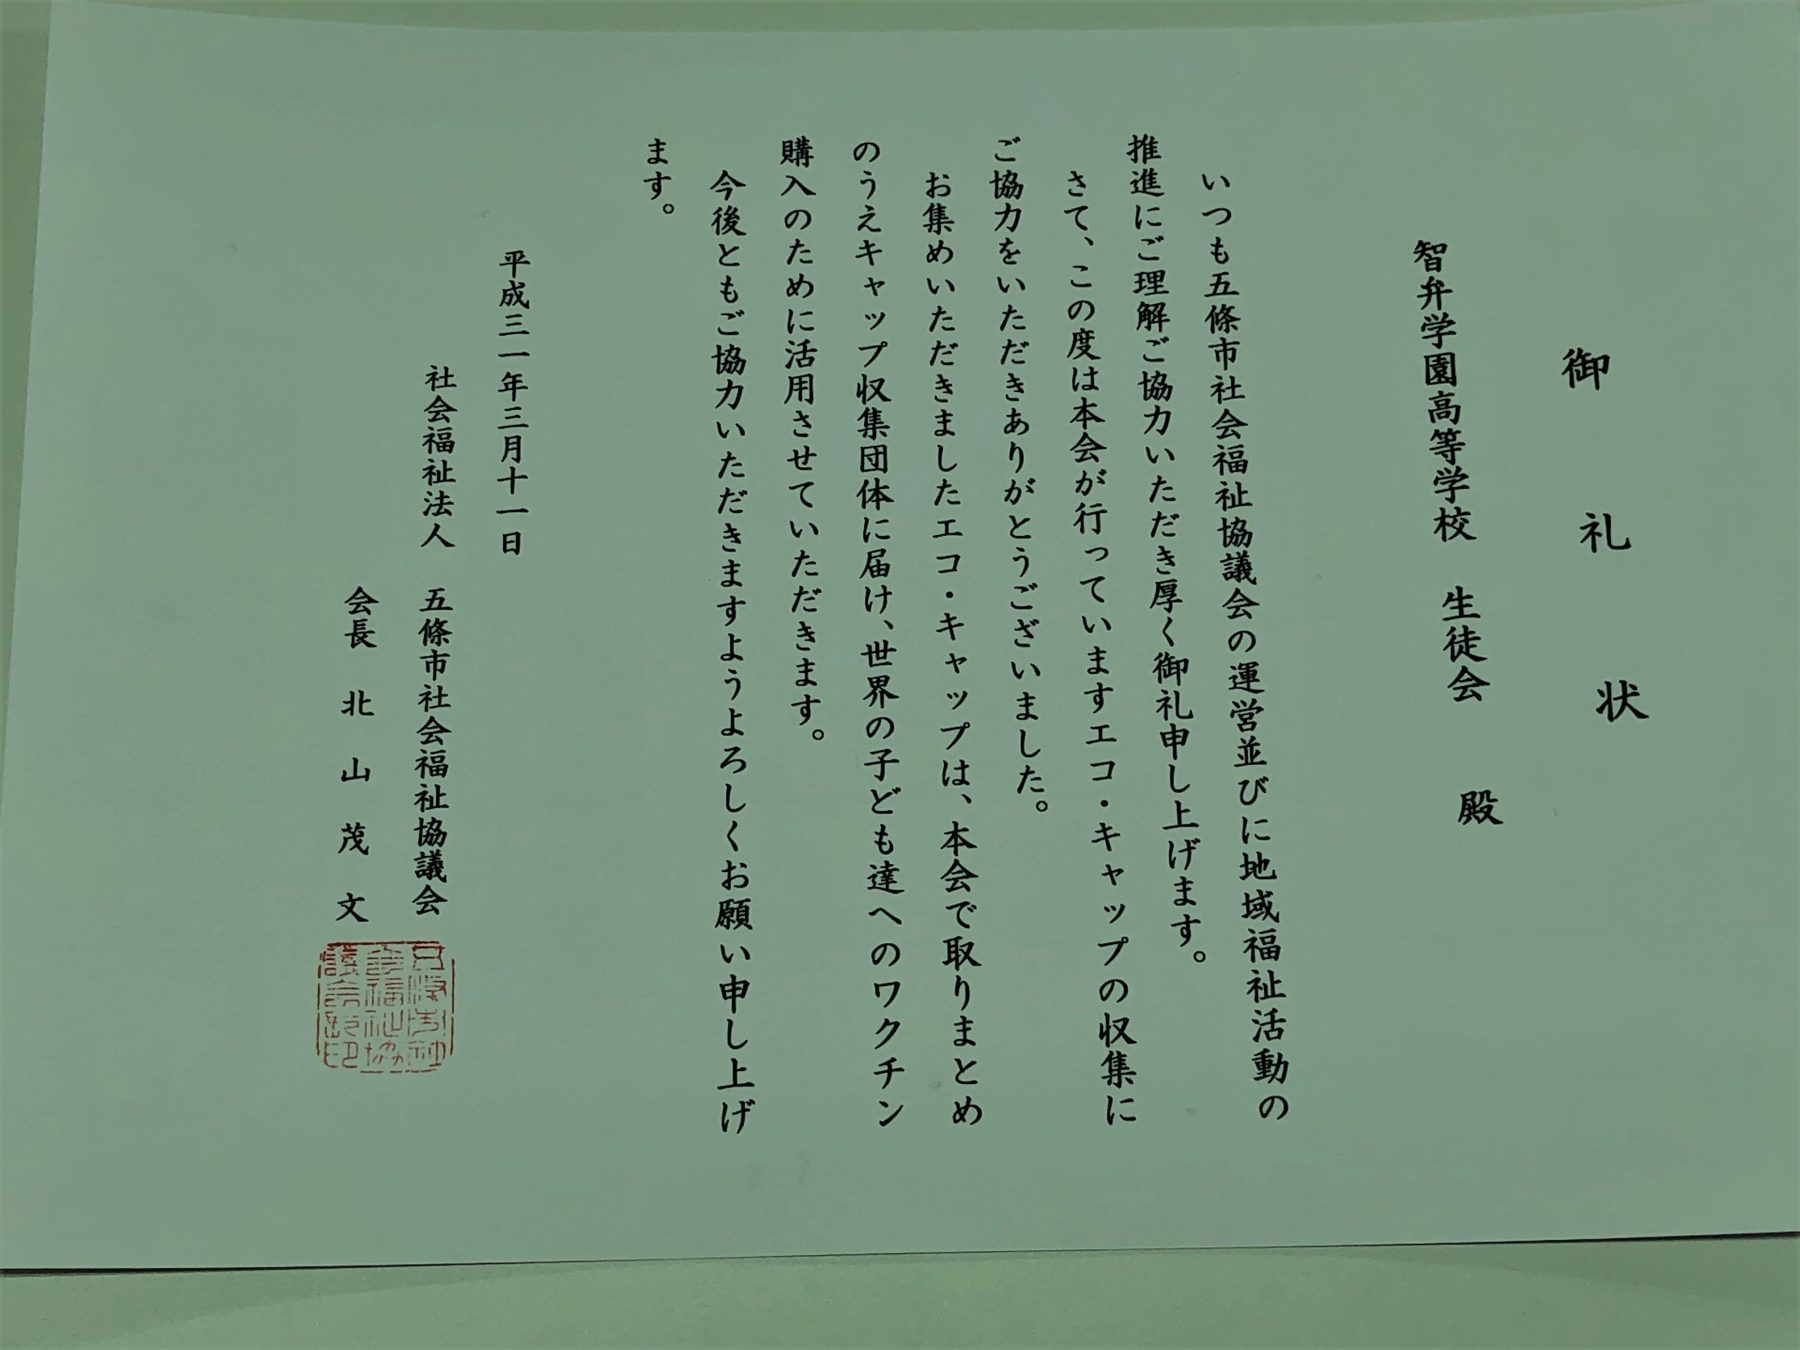 御礼状
智弁学園高等学校　生徒会　殿
いつも五條市社会福祉協議会の運営並びに地域福祉活動の
推進にご理解ご協力いただき厚く御礼申し上げます。
さて、この度は本会が行っていますエコ・キャップの収集に
ご協力をいただきありがとうございました。
お集めいただきましたエコ・キャップは、本会で取りまとめ
のうえキャップ収集団体に届け、世界の子ども達へのワクチン
購入のために活用させていただきます。
今後ともご協力いただきますようよろしくお願い申し上げ
ます。
平成三一年三月十一日
社会福祉法人　五條市社会福祉協議会
会長　北山茂文